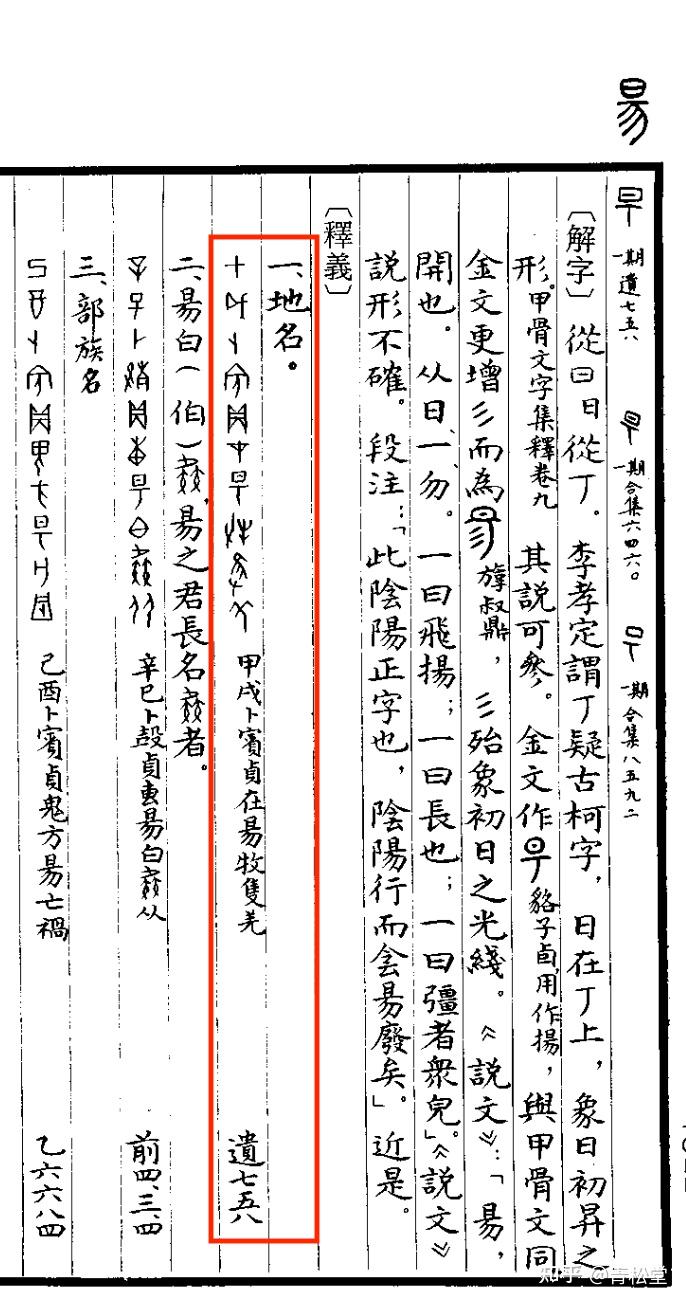 昜
一期 遺七五八 一期 合集六四六〇 一期 合集八五九二
〔解字〕從曰日從丁。李孝定謂丁疑古柯字,日在丁上,象日初昇之
形。甲骨文字集釋卷九 其說可參。金文作 貉子卣,用作揚,與甲骨文同
金文更增彡而為 旟叔鼎,彡殆象初日之光綫。《說文》:「昜,
開也。从日、一、勿。一曰飛揚;一曰長也;一曰彊者衆皃」。《說文》
說形不確。段注:「此陰陽正字也,陰陽行而侌昜廢矣」。近是。
〔釋義〕
一、地名。
甲戌卜賓貞在昜牧隻羌 遺七五八
二、昜白(伯)㺇,昜之君長名㺇者。
辛巳卜㱿貞叀昜白㺇从 前四.三.四
三、部族名
己酉卜賓貞鬼方昜亡禍 乙六六八四
知乎 @青松堂